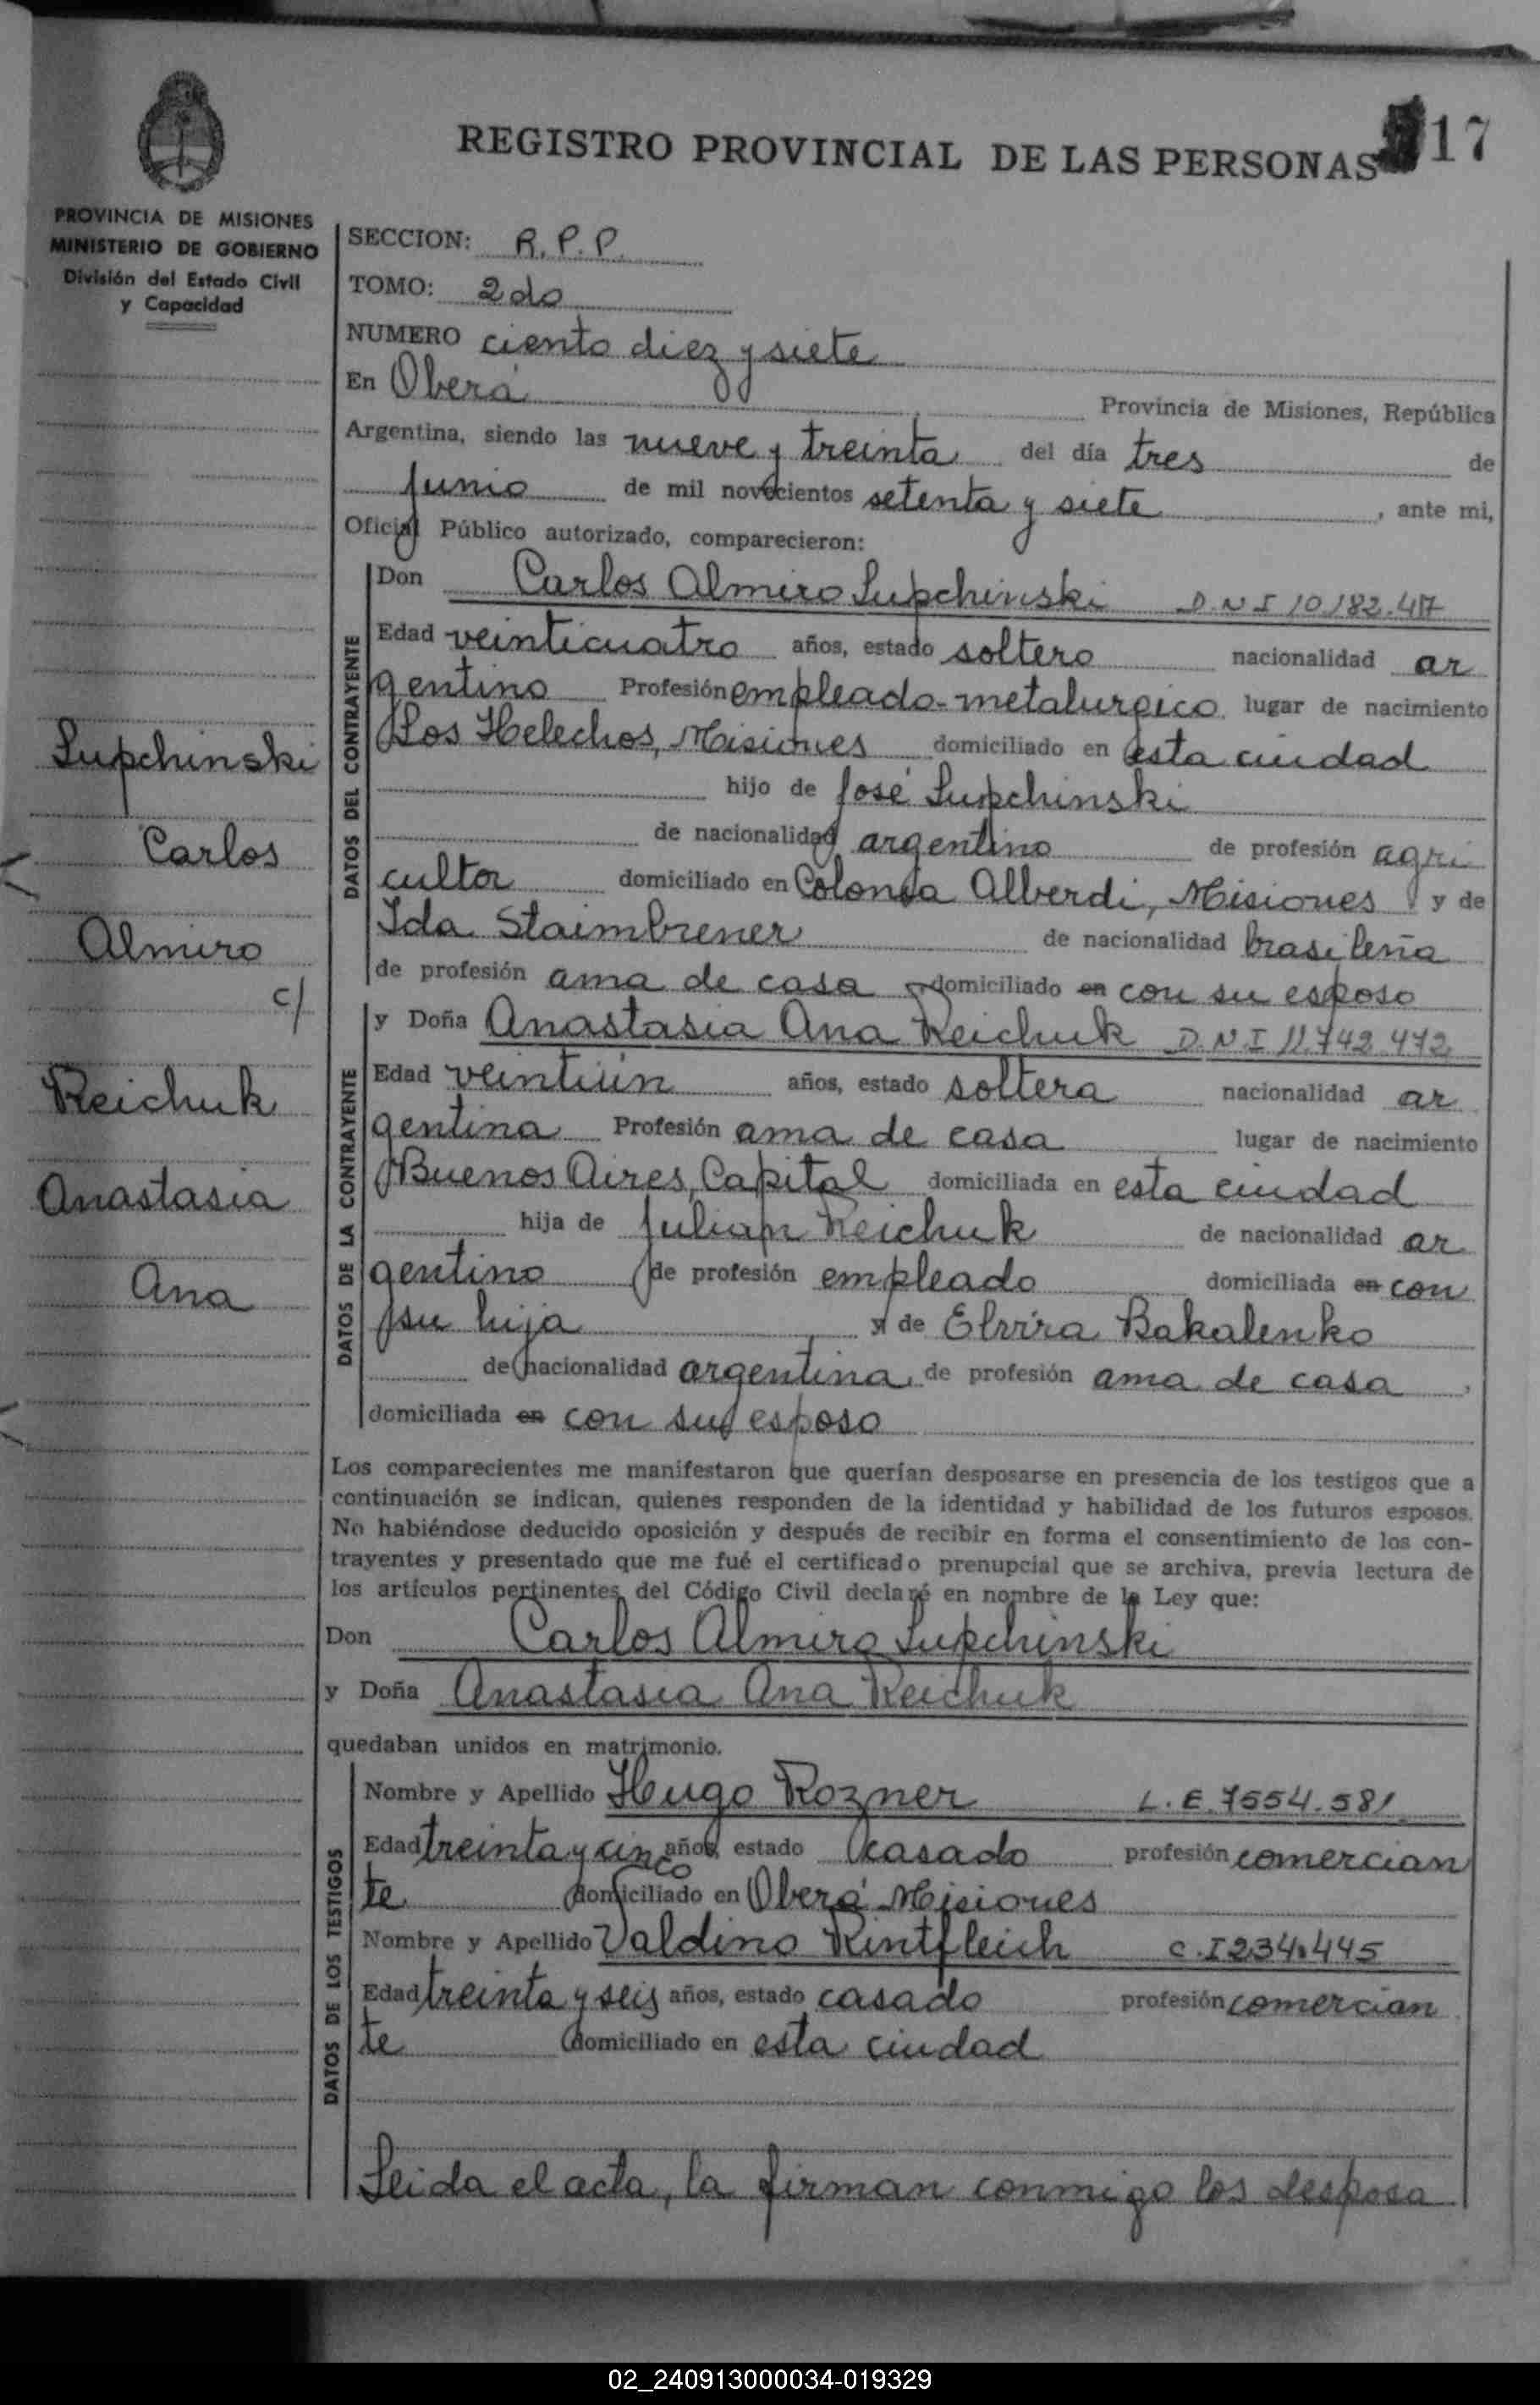 REGISTRO PROVINCIAL DE LAS PERSONAS 17
PROVINCIA DE MISIONES
MINISTERIO DE GOBIERNO
División del Estado Civil
y Capacidad
Lupchinski
Carlos
Almiro
c/
Reichuk
Anastasia
Ana
SECCION: R.P.P.
TOMO: 2do
NUMERO ciento diez y siete
En Oberá Provincia de Misiones, República
Argentina, siendo las nueve y treinta del día tres de
junio de mil novecientos setenta y siete, ante mi,
Oficial Público autorizado, comparecieron:
DATOS DEL CONTRAYENTE
Don Carlos Almiro Lupchinski D.N.I
Edad veinticuatro años, estado soltero nacionalidad ar
gentino Profesión empleado-metalurgico lugar de nacimiento
Los Helechos, Misiones domiciliado en esta ciudad
hijo de José Lupchinski
de nacionalidad argentino de profesión agri
cultor domiciliado en Colonia Alberdi, Misiones y de
Ida Staimbrener de nacionalidad brasileña
de profesión ama de casa domiciliado en con su esposo
DATOS DE LA CONTRAYENTE
y Doña Anastasia Ana Reichuk D.N.I 11.742.472
Edad veintiún años, estado soltera nacionalidad ar
gentina Profesión ama de casa lugar de nacimiento
Buenos Aires, Capital domiciliada en esta ciudad
hija de Julian Reichuk de nacionalidad ar
gentino de profesión empleado domiciliada en con
su hija y de Elvira Bakalenko
de nacionalidad argentina, de profesión ama de casa,
domiciliada en con su esposo
Los comparecientes me manifestaron que querían desposarse en presencia de los testigos que a
continuación se indican, quienes responden de la identidad y habilidad de los futuros esposos.
No habiéndose deducido oposición y después de recibir en forma el consentimiento de los con-
trayentes y presentado que me fué el certificado prenupcial que se archiva, previa lectura de
los artículos pertinentes del Código Civil declaré en nombre de la Ley que:
Don Carlos Almiro Lupchinski
y Doña Anastasia Ana Reichuk
quedaban unidos en matrimonio.
DATOS DE LOS TESTIGOS
Nombre y Apellido Hugo Rozner L.E.7554.581
Edad treinta y cinco años, estado casado profesión comercian
te domiciliado en Oberá Misiones
Nombre y Apellido Valdino Rintfleich C.I 234.445
Edad treinta y seis años, estado casado profesión comercian
te domiciliado en esta ciudad
Leida el acta, la firman conmigo los desposa
02_240913000034-019329